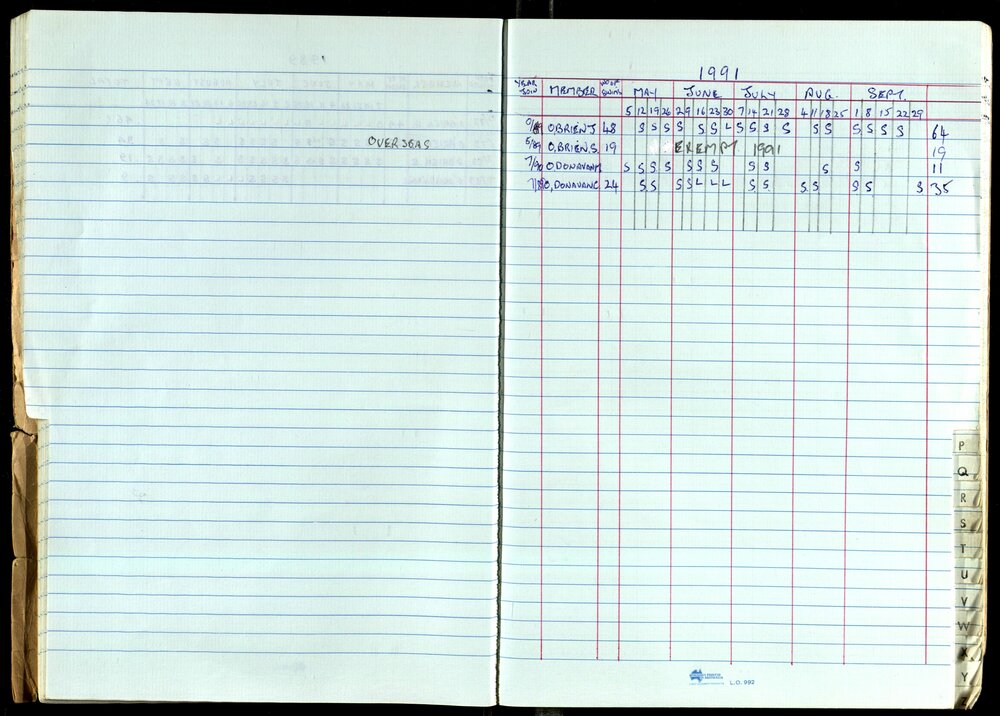 OVERSEAS
1991
YEAR JOIN MEMBER NO OF SWIMS MAY JUNE JULY AUG. SEPT.
5 12 19 26 2 9 16 23 30 7 14 21 28 4 11 18 25 1 8 15 22 29
O'BRIEN J 48 S S S S S S L S S S S S S S S S S 64
5/89 O'BRIEN S 19 EXEMPT 1991 19
7/90 O'DONAVAN S S S S S S S S S S S 11
O'DONAVAN C 24 S S S S L L L S S S S S S S 35
L.O. 992
P
Q
R
S
T
U
V
W
X
Y